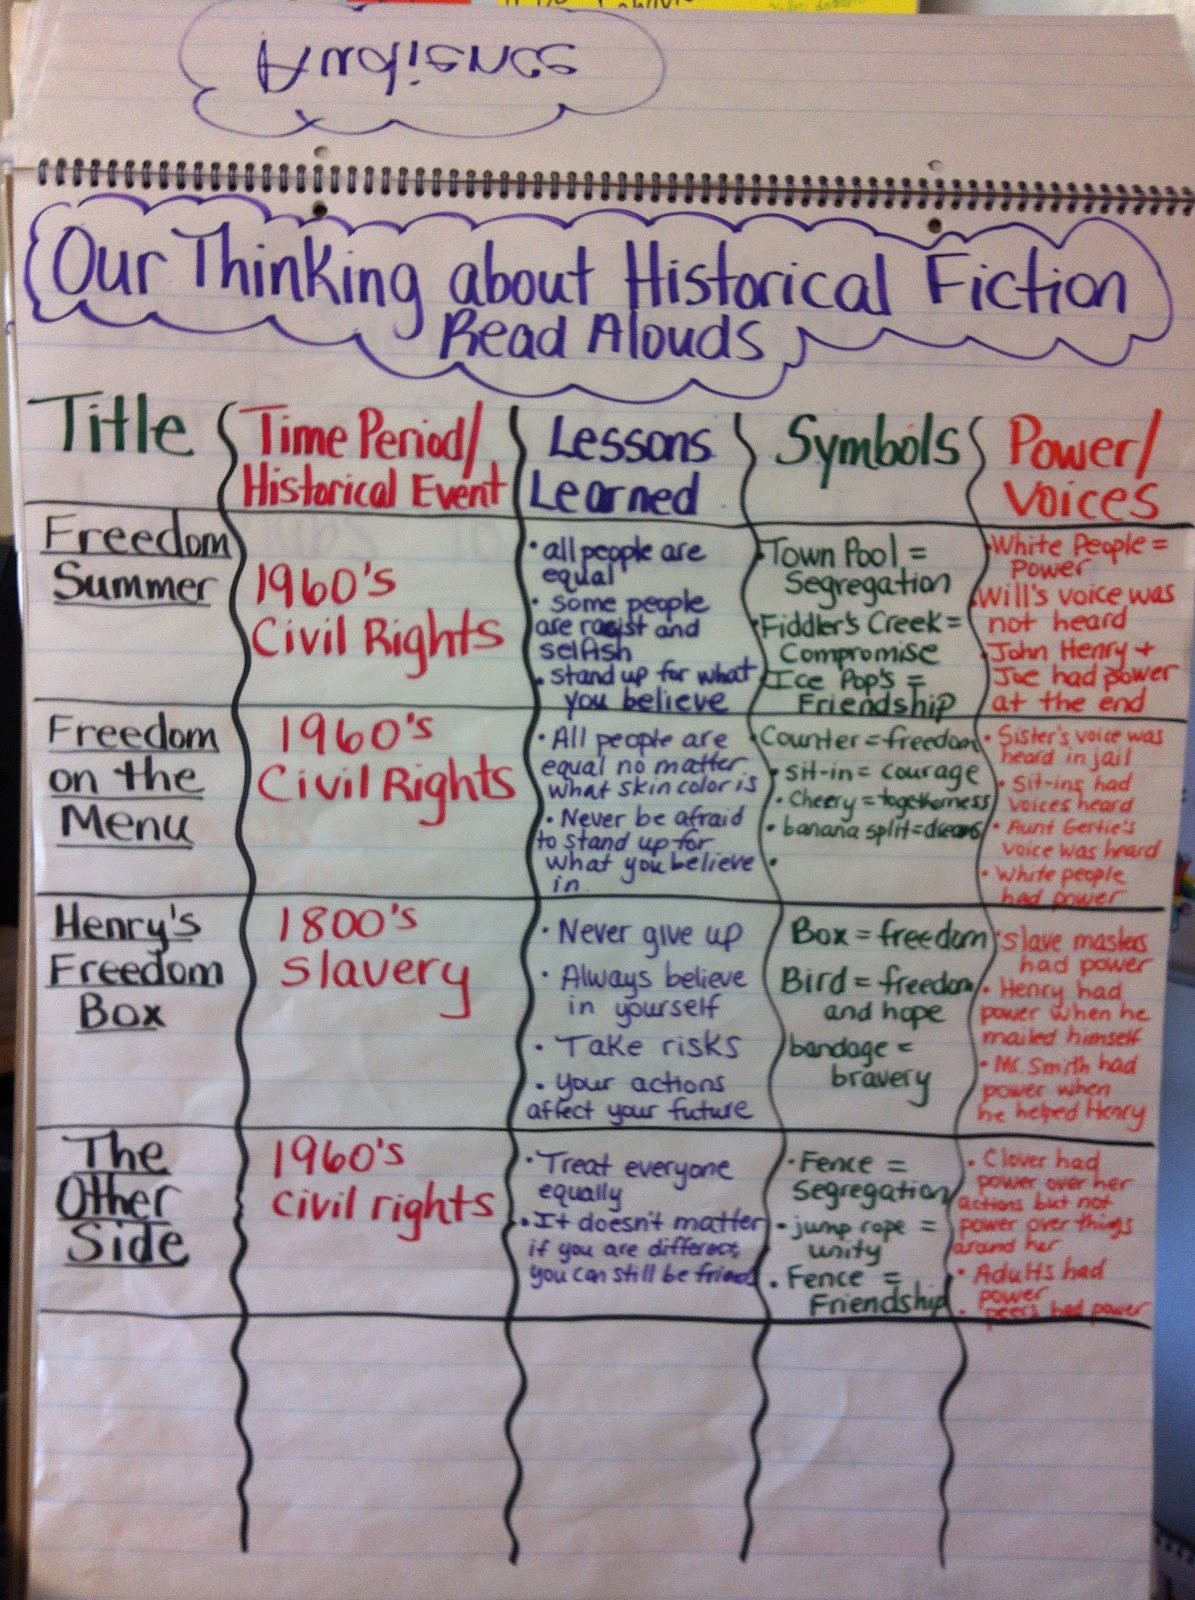 Audience
Our Thinking about Historical Fiction
Read Alouds
Title
Time Period/
Historical Event
Lessons
Learned
Symbols
Power/
Voices
Freedom
Summer
1960's
Civil Rights
• all people are
equal
• some people
are racist and
selfish
• stand up for what
you believe
• Town Pool =
Segregation
• Fiddler's Creek =
Compromise
• Ice Pop's =
Friendship
• White People =
Power
• Will's voice was
not heard
• John Henry +
Joe had power
at the end
Freedom
on the
Menu
1960's
Civil Rights
• All people are
equal no matter
what skin color is
• Never be afraid
to stand up for
what you believe
in
• Counter = freedom
• sit-in = courage
• Cheery = togetherness
• banana split = dreams
•
• Sister's voice was
heard in jail
• Sit-ins had
voices heard
• Aunt Gertie's
voice was heard
• White people
had power
Henry's
Freedom
Box
1800's
Slavery
• Never give up
• Always believe
in yourself
• Take risks
• your actions
affect your future
Box = freedom
Bird = freedom
and hope
bandage =
bravery
• slave masters
had power
• Henry had
power when he
mailed himself
• Mr. Smith had
power when
he helped Henry
The
Other
Side
1960's
civil rights
• Treat everyone
equally
• It doesn't matter
if you are different,
you can still be friends
• Fence =
Segregation
• jump rope =
unity
• Fence =
Friendship
• Clover had
power over her
actions but not
power over things
around her
• Adults had
power
• peers had power